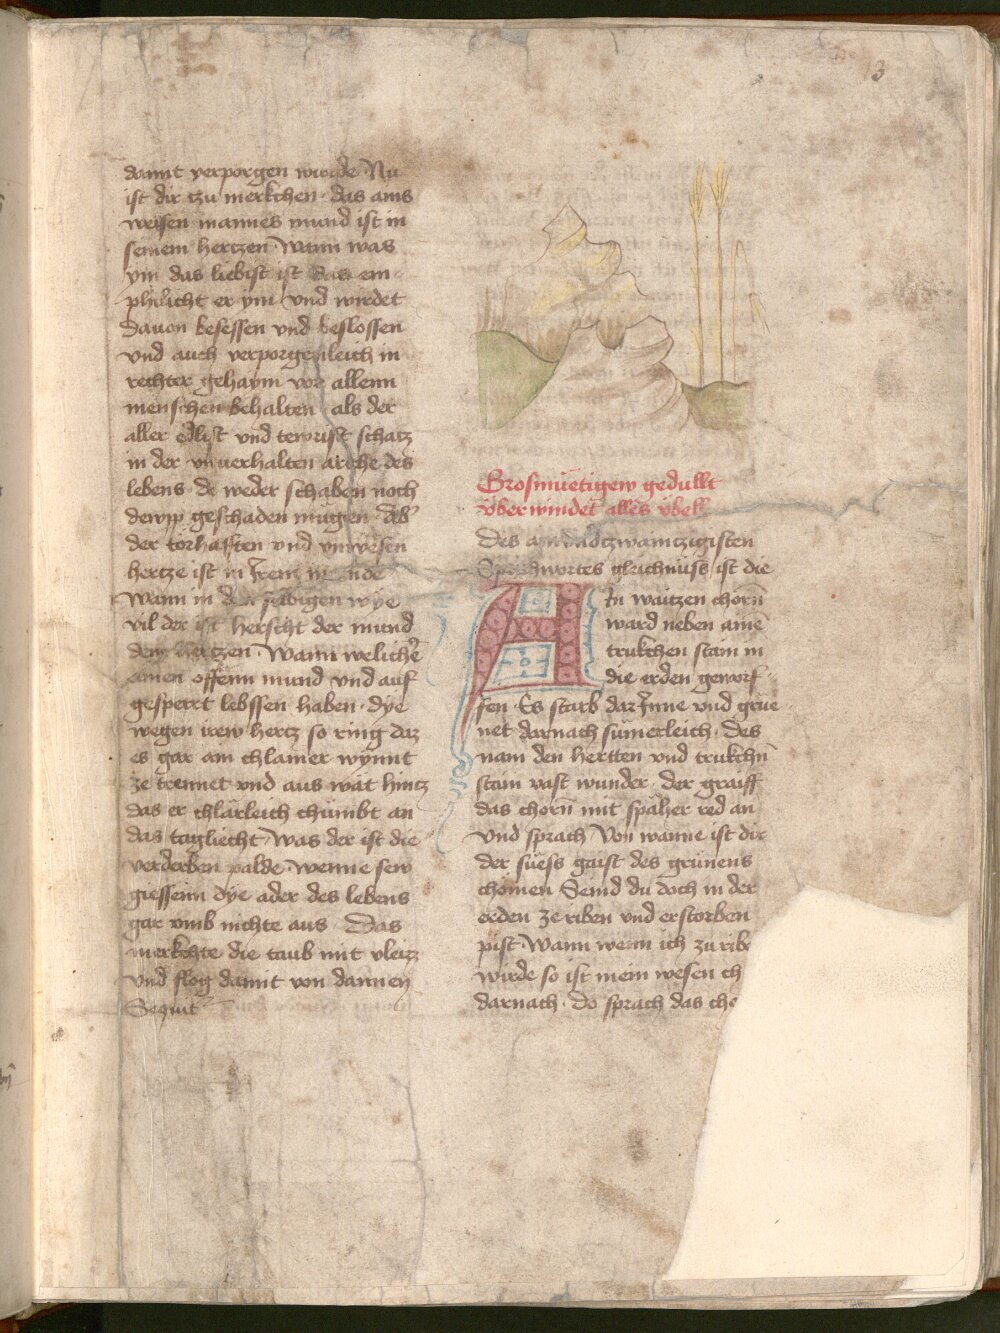 13
damit verporgen wurde Nu
ist dir tzu merkchen das ains
weisen mannes mund ist in
seinem hertzen Wann was
ym das liebist ist das em
philicht er ym vnd wirdet
dauon besessen vnd beslossen
vnd auch verporgenleich in
rechter gehaym vor allenn
menschen behalten als der
aller edlist vnd tewrist schatz
in der vnuerhalten arche des
lebens de weder schaben noch
geschaden mügen Ab̾
der torhafften vnd vnweisen
hertze ist in Irem munde
wann in der selbigen wye
vil der ist herscht der mund
dem hertzen Wann welich̾e
ainen offenn mund vnd auf
gesperrt lebssen haben dye
wegen irew hertz so ring daz
es gar ain chlainer wynnt
ze trennet vnd aus wät hintz
das er chlärleich chümbt an
das tagliecht Was der ist die
verderben palde wenne sew
giessenn dye ader des lebens
gar vmb nichte aus Das
merkchte die taub mit vleizz
vnd flog damit von dannen
Sequit̾
Grosmüetigew gedullt
vberwindet alles vbell
Des
Sprichwortes gleichnuss ist die
AIn waitzen chorn̄
ward neben aine̅
trukchen stain in
die erden geworf
fen Es starb dar Inne vnd grue
net darnach sümerleich Des
nam den hertten vnd trukchn̄
stain vast wunder der graiff
das chorn̄ mit späher red an
vnd sprach Von wanne ist dir
der süess gaist des grünens
chömen Seind du doch in der
erden ze riben vnd erstorben
pist Wann wenn ich zu ribe
wirde so ist mein wesen ch
darnach do sprach das cho